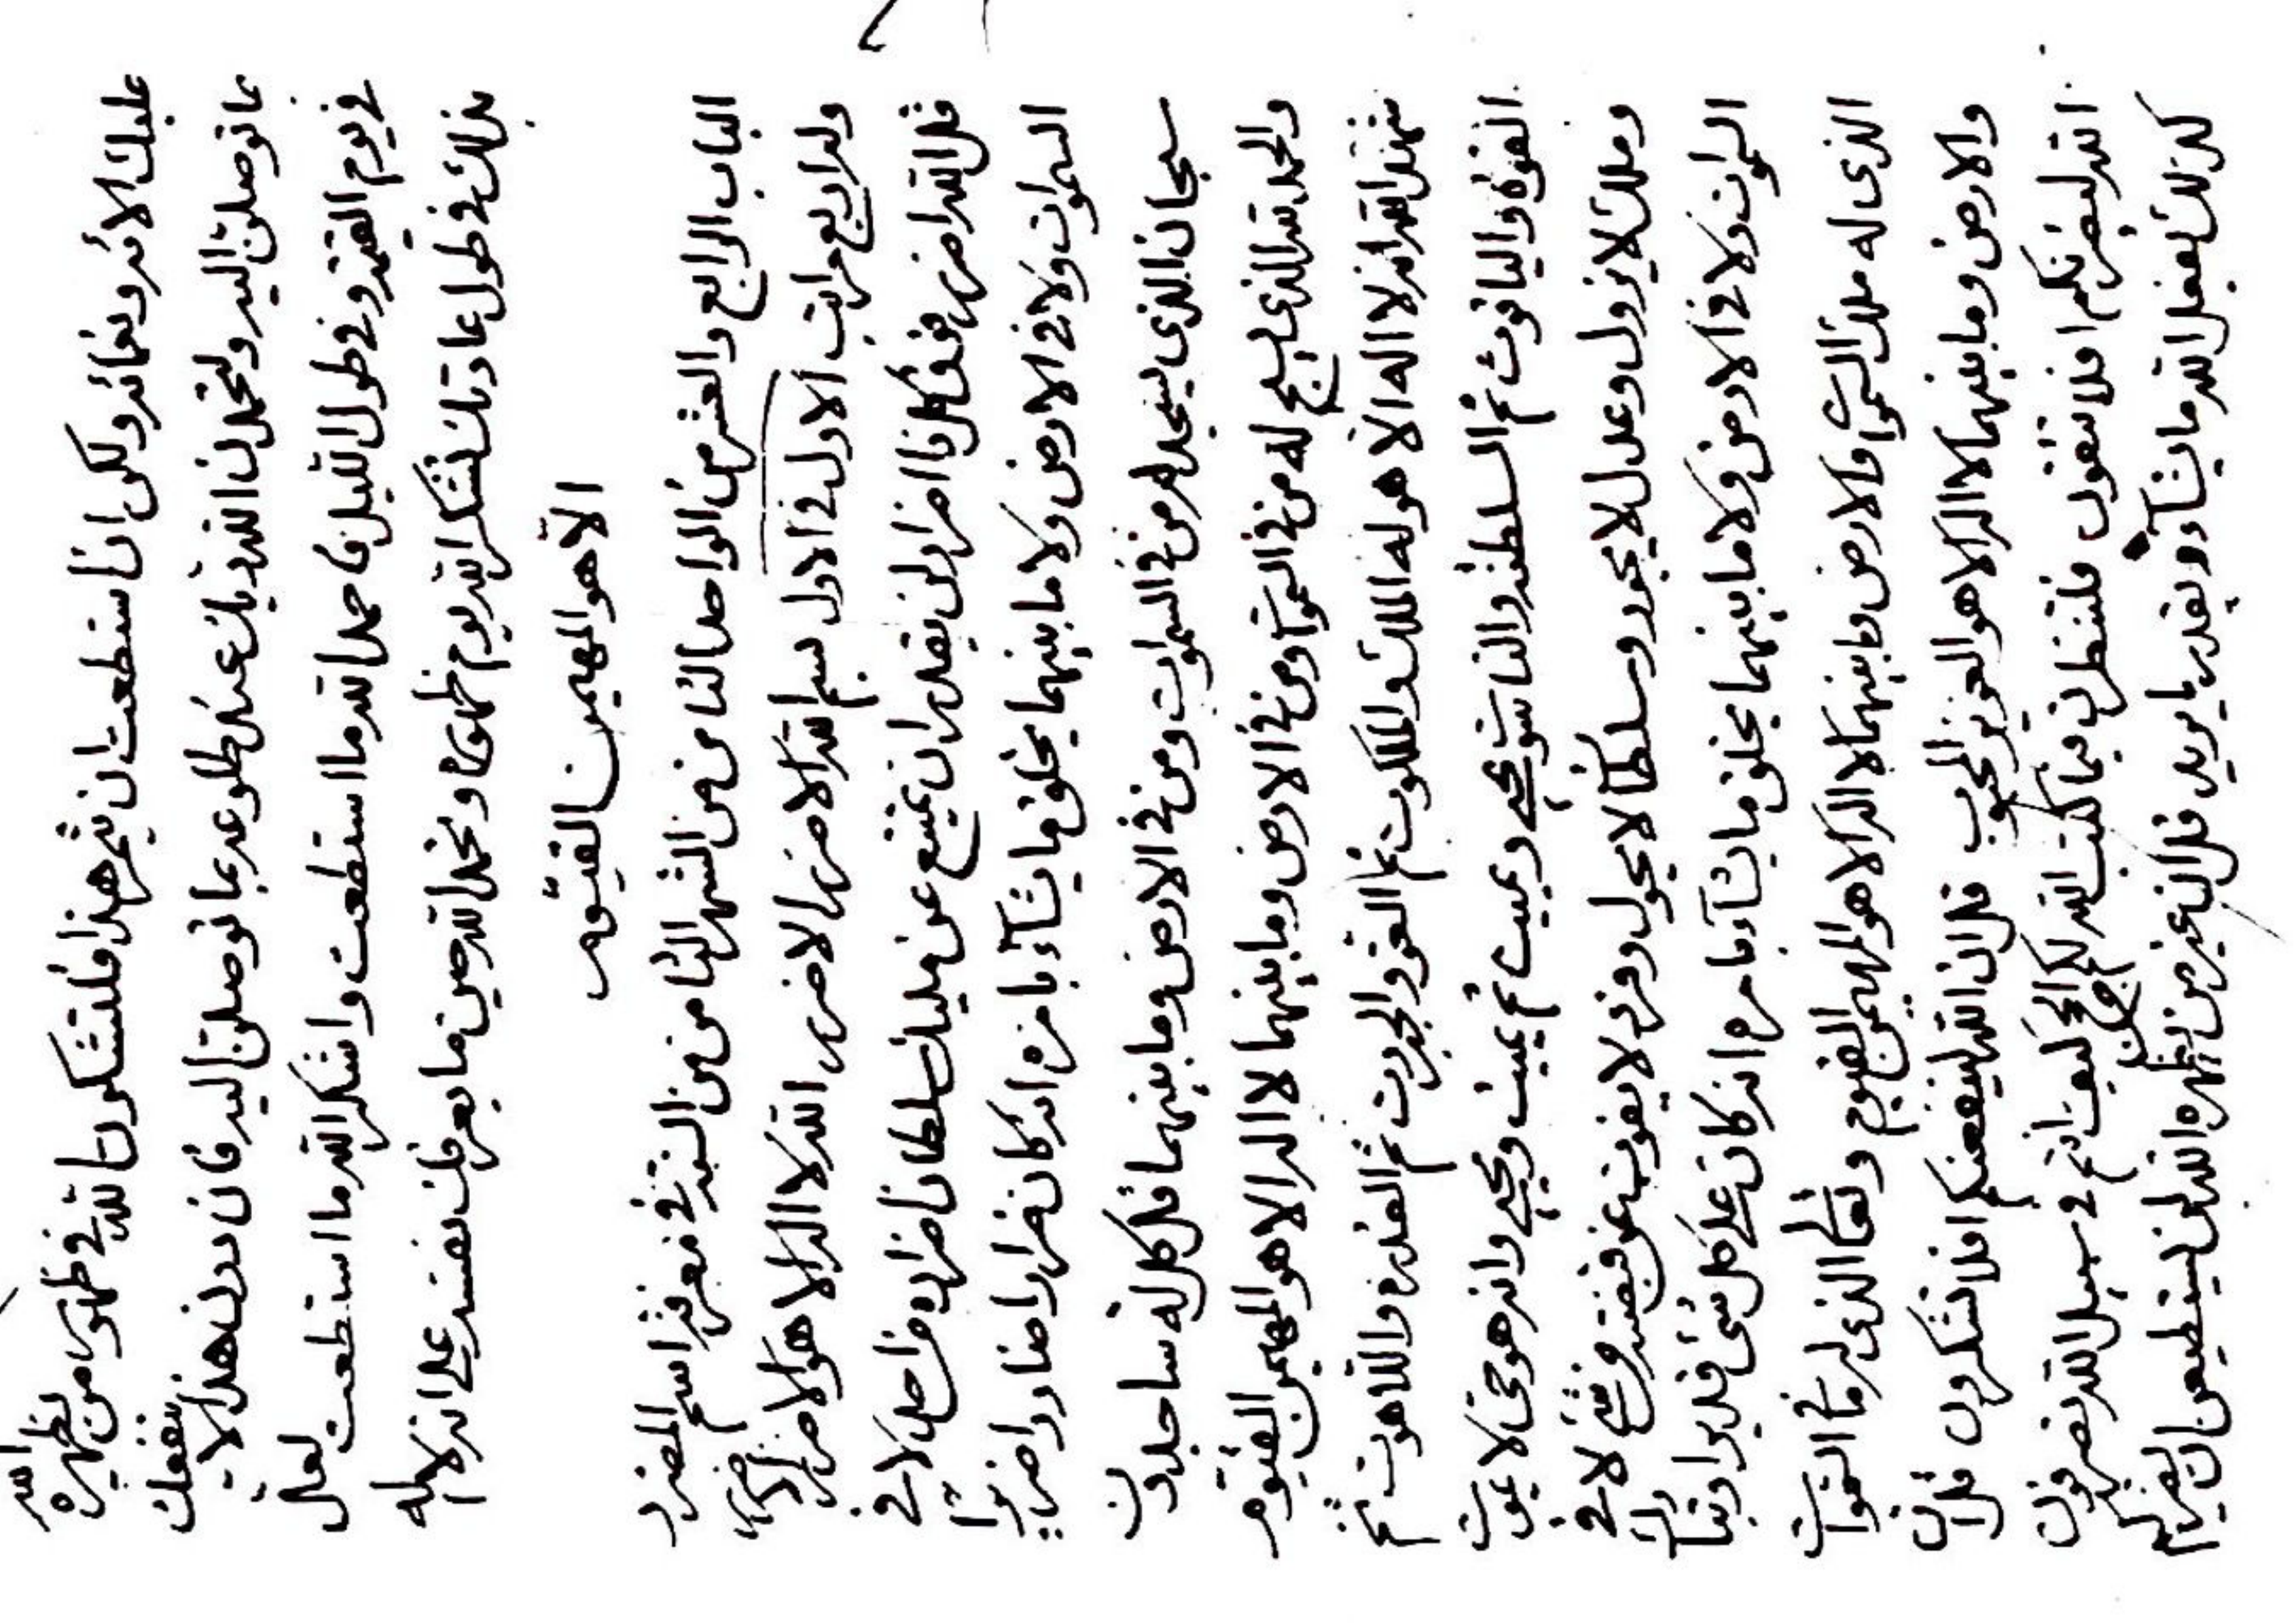 عليك الائه ونعمائه ولكن ان استطعت ان تثمر هذا فلتشكرن الله في ظهور من يظهره الله
بما توصلن اليه ولتحمدن الله ربك عند طلوعه بما توصلن اليه فان دون هذا لا ينفعك
في يوم القيمة وفي طول الليل فاحمد الله ما استطعت واشكر الله ما استطعت لعل
بذلك في طول عادتك تشكر الله يوم ظهوره وتحمد الله حين ما يعرفك نفسه على انه لا اله
الا هو المهيمن القيوم
الباب الرابع والعشر من الواحد الثامن من الشهر الثامن من السنة في معرفة اسم المضرر
وله اربع مراتب الاول في الاول بسم الله الاضرر الاضرر الله لا اله الا هو الاضرر الاضرر
قل الله اضرر فوق كل ذا اضرار لن يقدر ان يمتنع عن مليك سلطان اضراره من احد لا في
السموات ولا في الارض ولا ما بينهما يخلق ما يشآء بامره انه كان ضرارا ضارا ضريرا
سبحان الذي يسجد له من في السموات ومن في الارض وما بينهما قل كل له ساجدون
والحمد لله الذي يسبح له من في السموات ومن في الارض وما بينهما لا اله الا هو المهيمن القيوم
شهد الله انه لا اله الا هو له الملك والملكوت ثم العز والجبروت ثم القدرة واللاهوت ثم
القوة والياقوت ثم السلطنة والناسوت يحيي ويميت ثم يميت ويحيي وانه هو حي لا يموت
وملك لا يزول وعدل لا يجور وسلطان لا يحول وفرد لا يفوت عن قبضته من شئ لا في
السموات ولا في الارض ولا ما بينهما يخلق ما يشآء بامره انه كان على كل شئ قديرا وتبارك
الذي له ملك السموات والارض وما بينهما لا اله الا هو المهيمن القيوم وتعالى الذي له ما في السموات
والارض وما بينهما لا اله الا هو العزيز المحبوب قل ان الله لينفعنكم افلا تشكرون قل ان
الله ليضرنكم افلا تتقون فلتنظرن فيما كتب الله لكم الحج كيف انتم في سبيل الله تصرفون
كذلك يفعل الله ما يشآء ويقدر ما يريد قل ان غير من يظهره الله لن يستطيعن ان يضركم